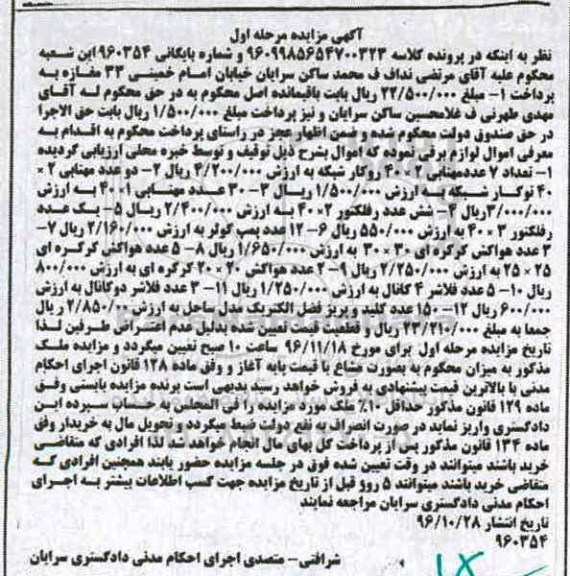 آگهی مزایده مرحله اول
نظر به اینکه در پرونده کلاسه ۹۶۰۹۹۸۵۶۵۴۷۰۰۳۲۳ و شماره بایگانی ۹۶۰۳۵۴ این شعبه
محکوم علیه آقای مرتضی نداف ف محمد ساکن سرایان خیابان امام خمینی ۳۳ مغازه به
پرداخت ۱- مبلغ ۲۲/۵۰۰/۰۰۰ ریال بابت باقیمانده اصل محکوم به در حق محکوم لـه آقـای
مهدی طهرنی ف غلامحسین ساکن سرایان و نیز پرداخت مبلغ ۱/۵۰۰/۰۰۰ ریال بابت حق الاجرا
در حق صندوق دولت محکوم شده و ضمن اظهار عجز در راستای پرداخت محکوم به اقـدام به
معرفی اموال لوازم برقی نموده که اموال بشرح ذیل توقیف و توسط خبره محلی ارزیابی گردیده
۱- تعداد ۷ عددمهتابی ۲ × ۴۰ روکار شبکه به ارزش ۴/۲۰۰/۰۰۰ ریال ۲- دو عدد مهتابی ۲ ×
۴۰ توکـار شـبکه بـه ارزش ۱/۵۰۰/۰۰۰ ریـال ۳- ۳۰ عـدد مهتـابی ۱×۴۰ بـه ارزش
۳/۰۰۰/۰۰۰ ریال ۴- شش عدد رفلکتور ۲×۴۰ بـه ارزش ۲/۴۰۰/۰۰۰ ریـال ۵- یـک عـدد
رفلکتور ۳ × ۴۰ به ارزش ۵۵۰/۰۰۰ ریال ۶- ۱۲ عدد پمپ کولر به ارزش ۲/۱۶۰/۰۰۰ ریال ۷-
۳ عدد هواکش کرکره ای ۳۰ × ۳۰ به ارزش ۱/۶۵۰/۰۰۰ ریال ۸- ۵ عدد هواکش کرکره ای
۲۵ × ۲۵ به ارزش ۲/۲۵۰/۰۰۰ ریال ۹- ۲ عدد هواکش ۲۰ × ۲۰ کرکره ای به ارزش ۸۰۰/۰۰۰
ریال ۱۰- ۵ عدد فلاشر ۴ کانال به ارزش ۱/۲۵۰/۰۰۰ ریال ۱۱- ۳ عدد فلاشر دوکانال به ارزش
۶۰۰/۰۰۰ ریال ۱۲- ۱۵۰ عدد کلید و پریز فضل الکتریک مدل ساحل به ارزش ۲/۸۵۰/۰۰۰ ریال
جمعا به مبلغ ۲۳/۲۱۰/۰۰۰ ریال و قطعیت قیمت تعیین شده بدلیل عدم اعتـراض طـرفین لـذا
تاریخ مزایده مرحله اول برای مورخ ۹۶/۱۱/۱۸ ساعت ۱۰ صبح تعیین میگردد و مزایده ملـک
مذکور به میزان محکوم به بصورت مشاع با قیمت پایه آغاز و وفق ماده ۱۲۸ قانون اجرای احکام
مدنی با بالاترین قیمت پیشنهادی به فروش خواهد رسید بدیهی است برنده مزایده بایستی وفـق
ماده ۱۲۹ قانون مذکور حداقل ۱۰٪ ملک مورد مزایده را فی المجلس به حساب سپرده ایـن
دادگستری واریز نماید در صورت انصراف به نفع دولت ضبط میگردد و تحویل مال به خریدار وفق
ماده ۱۳۴ قانون مذکور پس از پرداخت کل بهای مال انجام خواهد شد لذا افرادی که متقاضی
خرید باشند میتوانند در وقت تعیین شده فوق در جلسه مزایده حضور یابند همچنین افرادی کـه
متقاضی خرید باشند میتوانند ۵ روو قبل از تاریخ مزایده جهت کسب اطلاعات بیشتر بـه اجـرای
احکام مدنی دادگستری سرایان مراجعه نمایند
تاریخ انتشار ۹۶/۱۰/۲۸
۹۶۰۳۵۴
شرافتی- متصدی اجرای احکام مدنی دادگستری سرایان